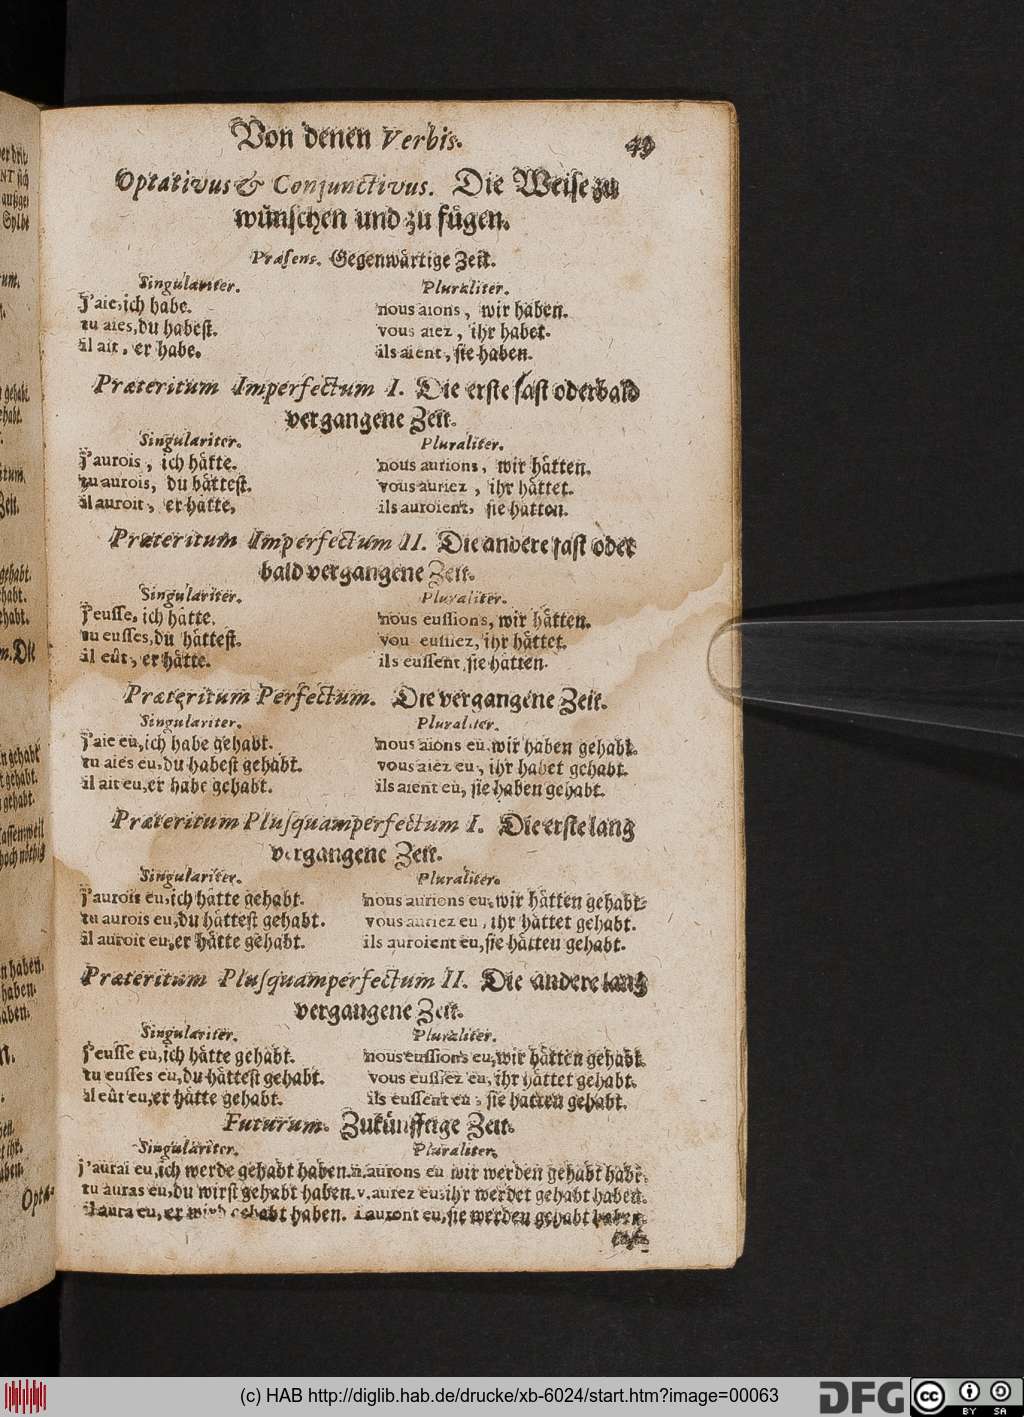 Von denen Verbis. 49
Optativus & Conjunctivus. Die Weise zu
wünschen und zu fügen.
Præsens. Gegenwärtige Zeit.
Singulariter. Pluraliter.
j'aie, ich habe. nous aions, wir haben.
tu aies, du habest. vous aiez, ihr habet.
il ait, er habe. ils aient, sie haben.
Præteritum Imperfectum I. Die erste fast oder bald
vergangene Zeit.
Singulariter. Pluraliter.
j'aurois, ich hätte. nous aurions, wir hätten.
tu aurois, du hättest. vous auriez, ihr hättet.
il auroit, er hätte, ils auroient, sie hätten.
Præteritum Imperfectum II. Die andere fast oder
bald vergangene Zeit.
Singulariter. Pluraliter.
j'eusse, ich hätte. nous eussions, wir hätten.
tu eusses, du hättest. vous eussiez, ihr hättet.
il eût, er hätte. ils eussent, sie hätten.
Præteritum Perfectum. Die vergangene Zeit.
Singulariter. Pluraliter.
j'aie eu, ich habe gehabt. nous aions eu, wir haben gehabt.
tu aies eu, du habest gehabt. vous aiez eu, ihr habet gehabt.
il ait eu, er habe gehabt. ils aient eu, sie haben gehabt.
Præteritum Plusquamperfectum I. Die erste lang
vergangene Zeit.
Singulariter. Pluraliter.
j'aurois eu, ich hätte gehabt. nous aurions eu, wir hätten gehabt.
tu aurois eu, du hättest gehabt. vous auriez eu, ihr hättet gehabt.
il auroit eu, er hätte gehabt. ils auroient eu, sie hätten gehabt.
Præteritum Plusquamperfectum II. Die andere lang
vergangene Zeit.
Singulariter. Pluraliter.
j'eusse eu, ich hätte gehabt. nous eussions eu, wir hätten gehabt.
tu eusses eu, du hättest gehabt. vous eussiez eu, ihr hättet gehabt.
il eût eu, er hätte gehabt. ils eussent eu, sie hätten gehabt.
Futurum. Zukünfftige Zeit.
Singulariter. Pluraliter.
j'aurai eu, ich werde gehabt haben. n. aurons eu wir werden gehabt habe.
tu auras eu, du wirst gehabt haben. v. aurez eu, ihr werdet gehabt haben.
il aura eu, er wird gehabt haben. i. auront eu, sie werden gehabt haben.
(c) HAB http://diglib.hab.de/drucke/xb-6024/start.htm?image=00063 DFG cc BY SA